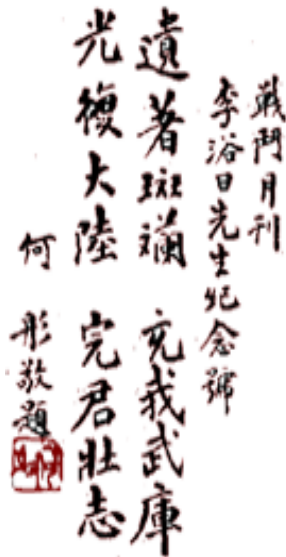 戰鬥月刊
李浴日先生紀念號
遺著斑斕 充我武庫
光復大陸 完君壯志
何彤敬題